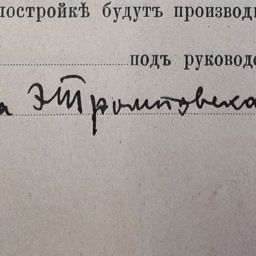 постройкѣ будутъ производи
подъ руководс
а ЭТромповска